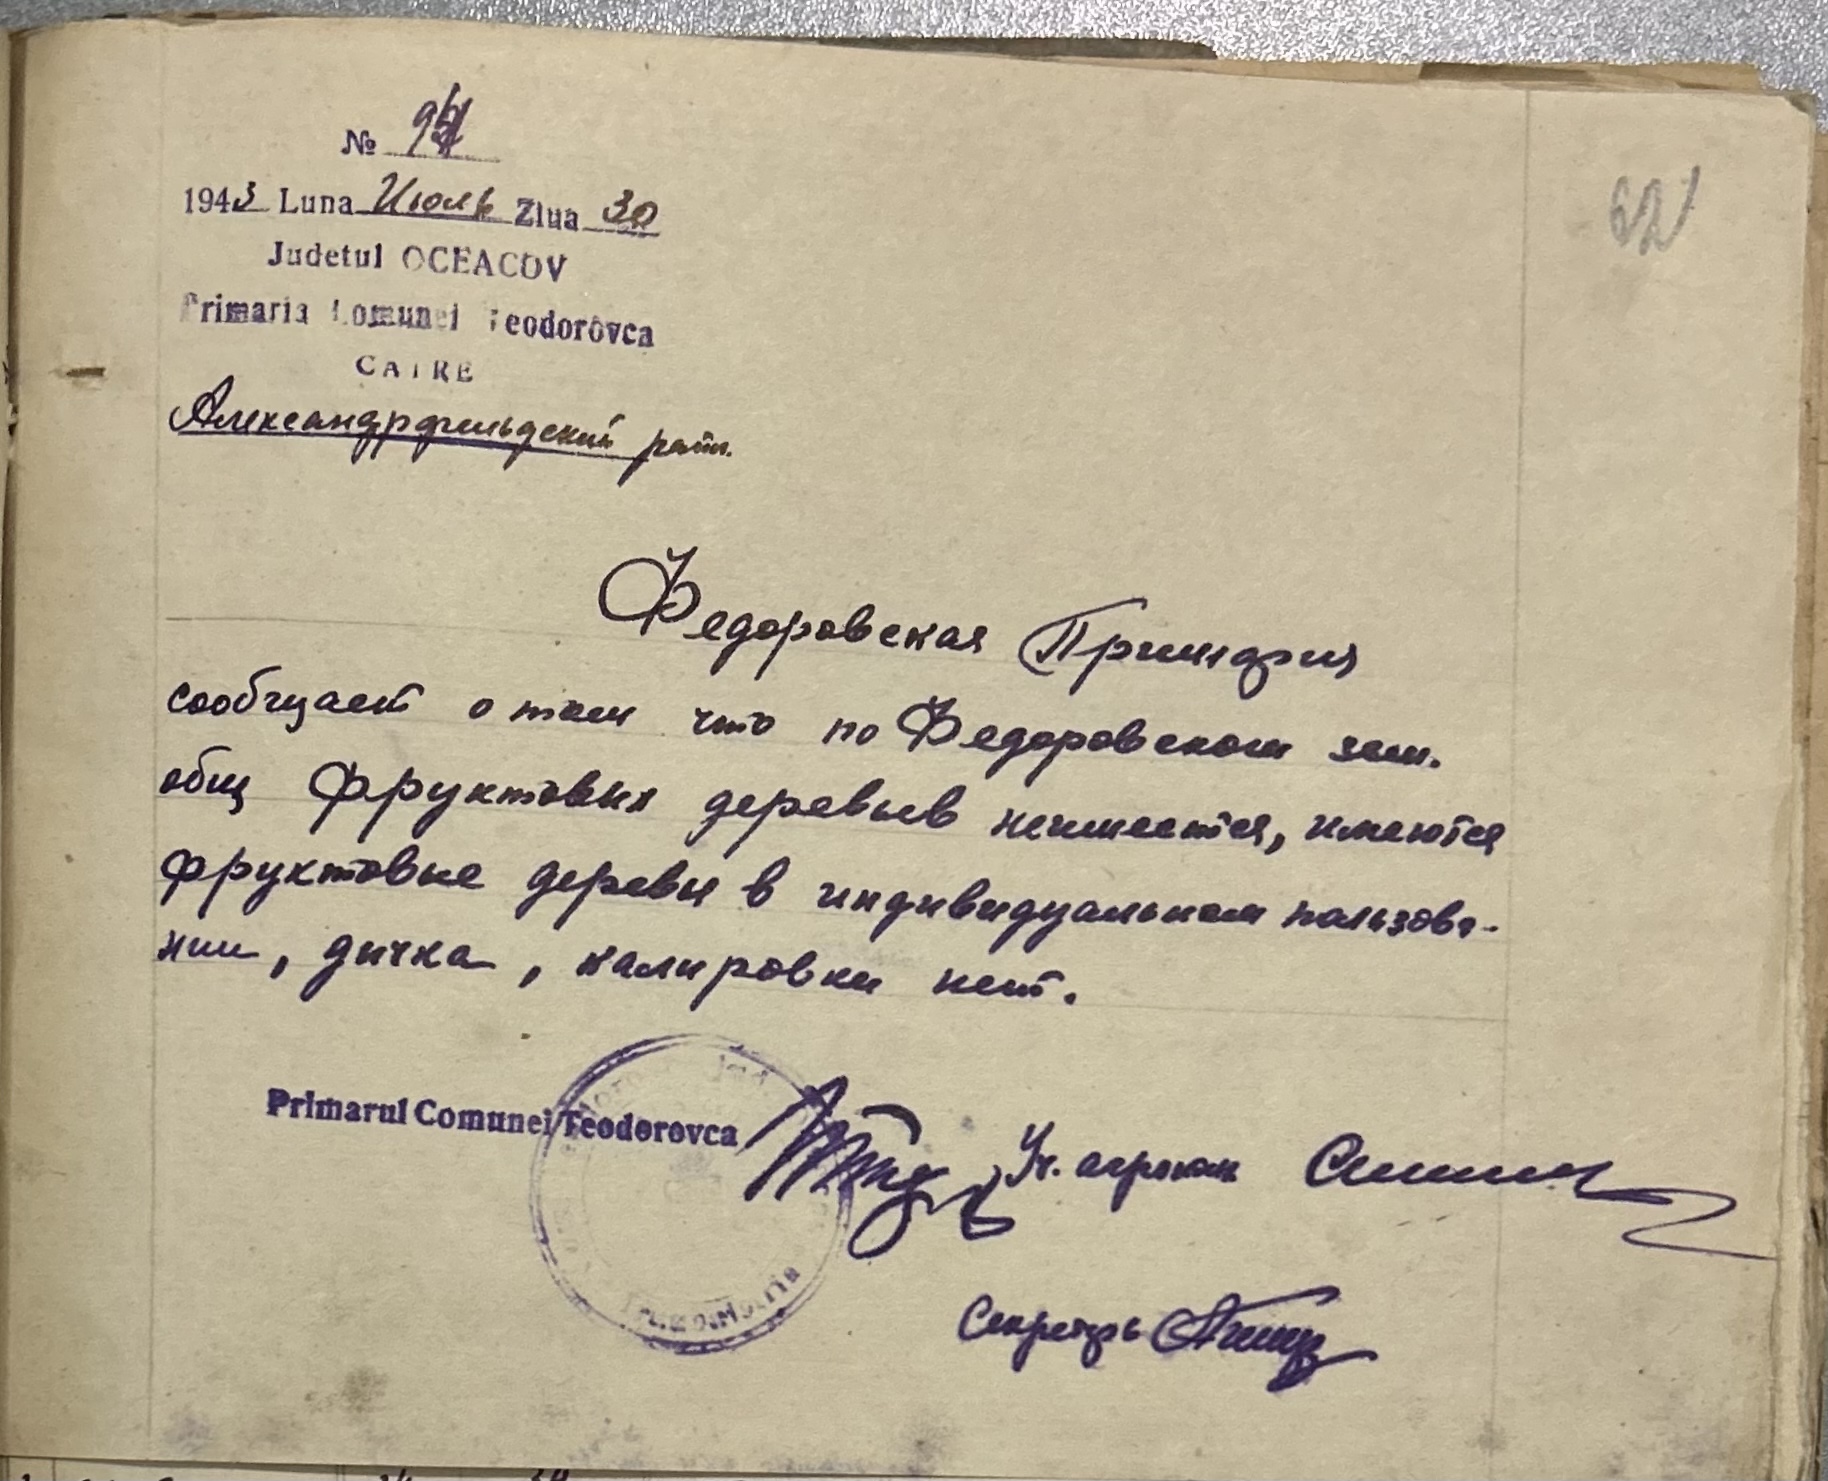 №
62
1943 Luna Июль Ziua 30
Judetul OCEACOV
Primaria Comunei Teodorovca
CATRE
Александрфильдский
Федоровская Примария
сообщает о том что по Федоровском зем.
общ фруктовых деревьев неимеется, имеются
фруктовые деревы в индивидуальном пользова-
нии, дичка, калировки нет.
Primarul Comunei Teodorovca
Уч. агроном
Секретарь